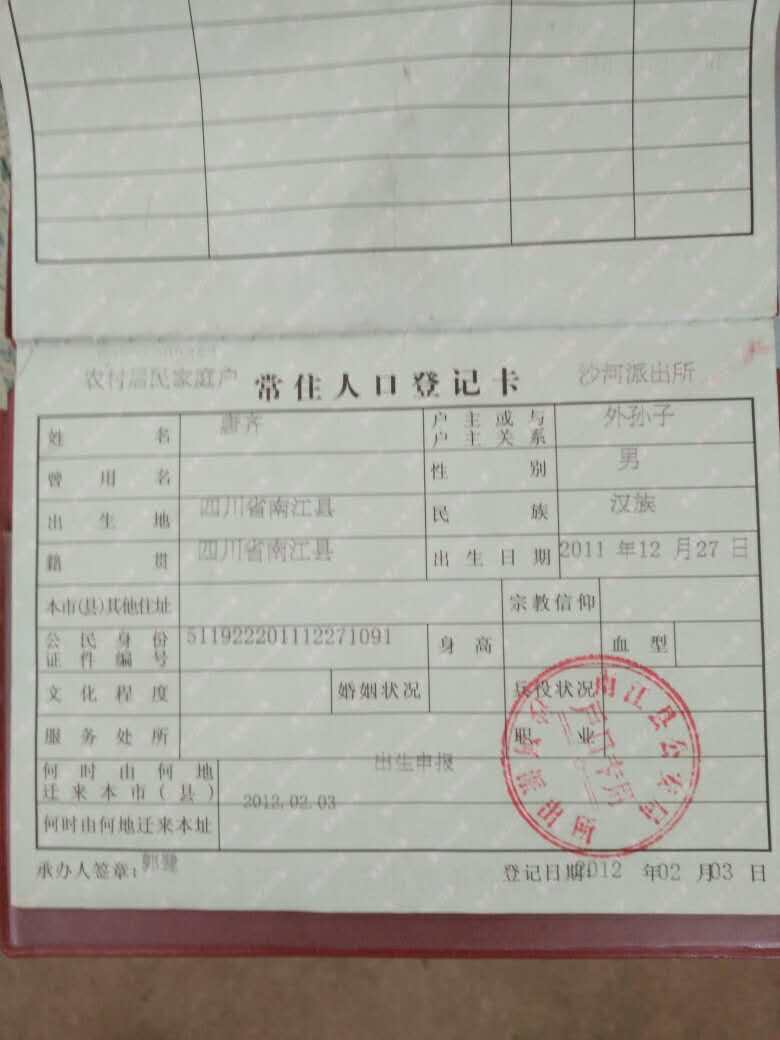 农村居民家庭户 常住人口登记卡 沙河派出所
姓名 唐齐 户主或与户主关系 外孙子
曾用名 性别 男
出生地 四川省南江县 民族 汉族
籍贯 四川省南江县 出生日期 2011 年12 月27 日
本市(县)其他住址 宗教信仰
公民身份证件编号 511922201112271091 身高 血型
文化程度 婚姻状况 兵役状况
服务处所 职业
何时由何地迁来本市(县) 出生申报
2012.02.03
何时由何地迁来本址
承办人签章: 登记日期:2012 年02 月03 日
南江县公安局
户口专用